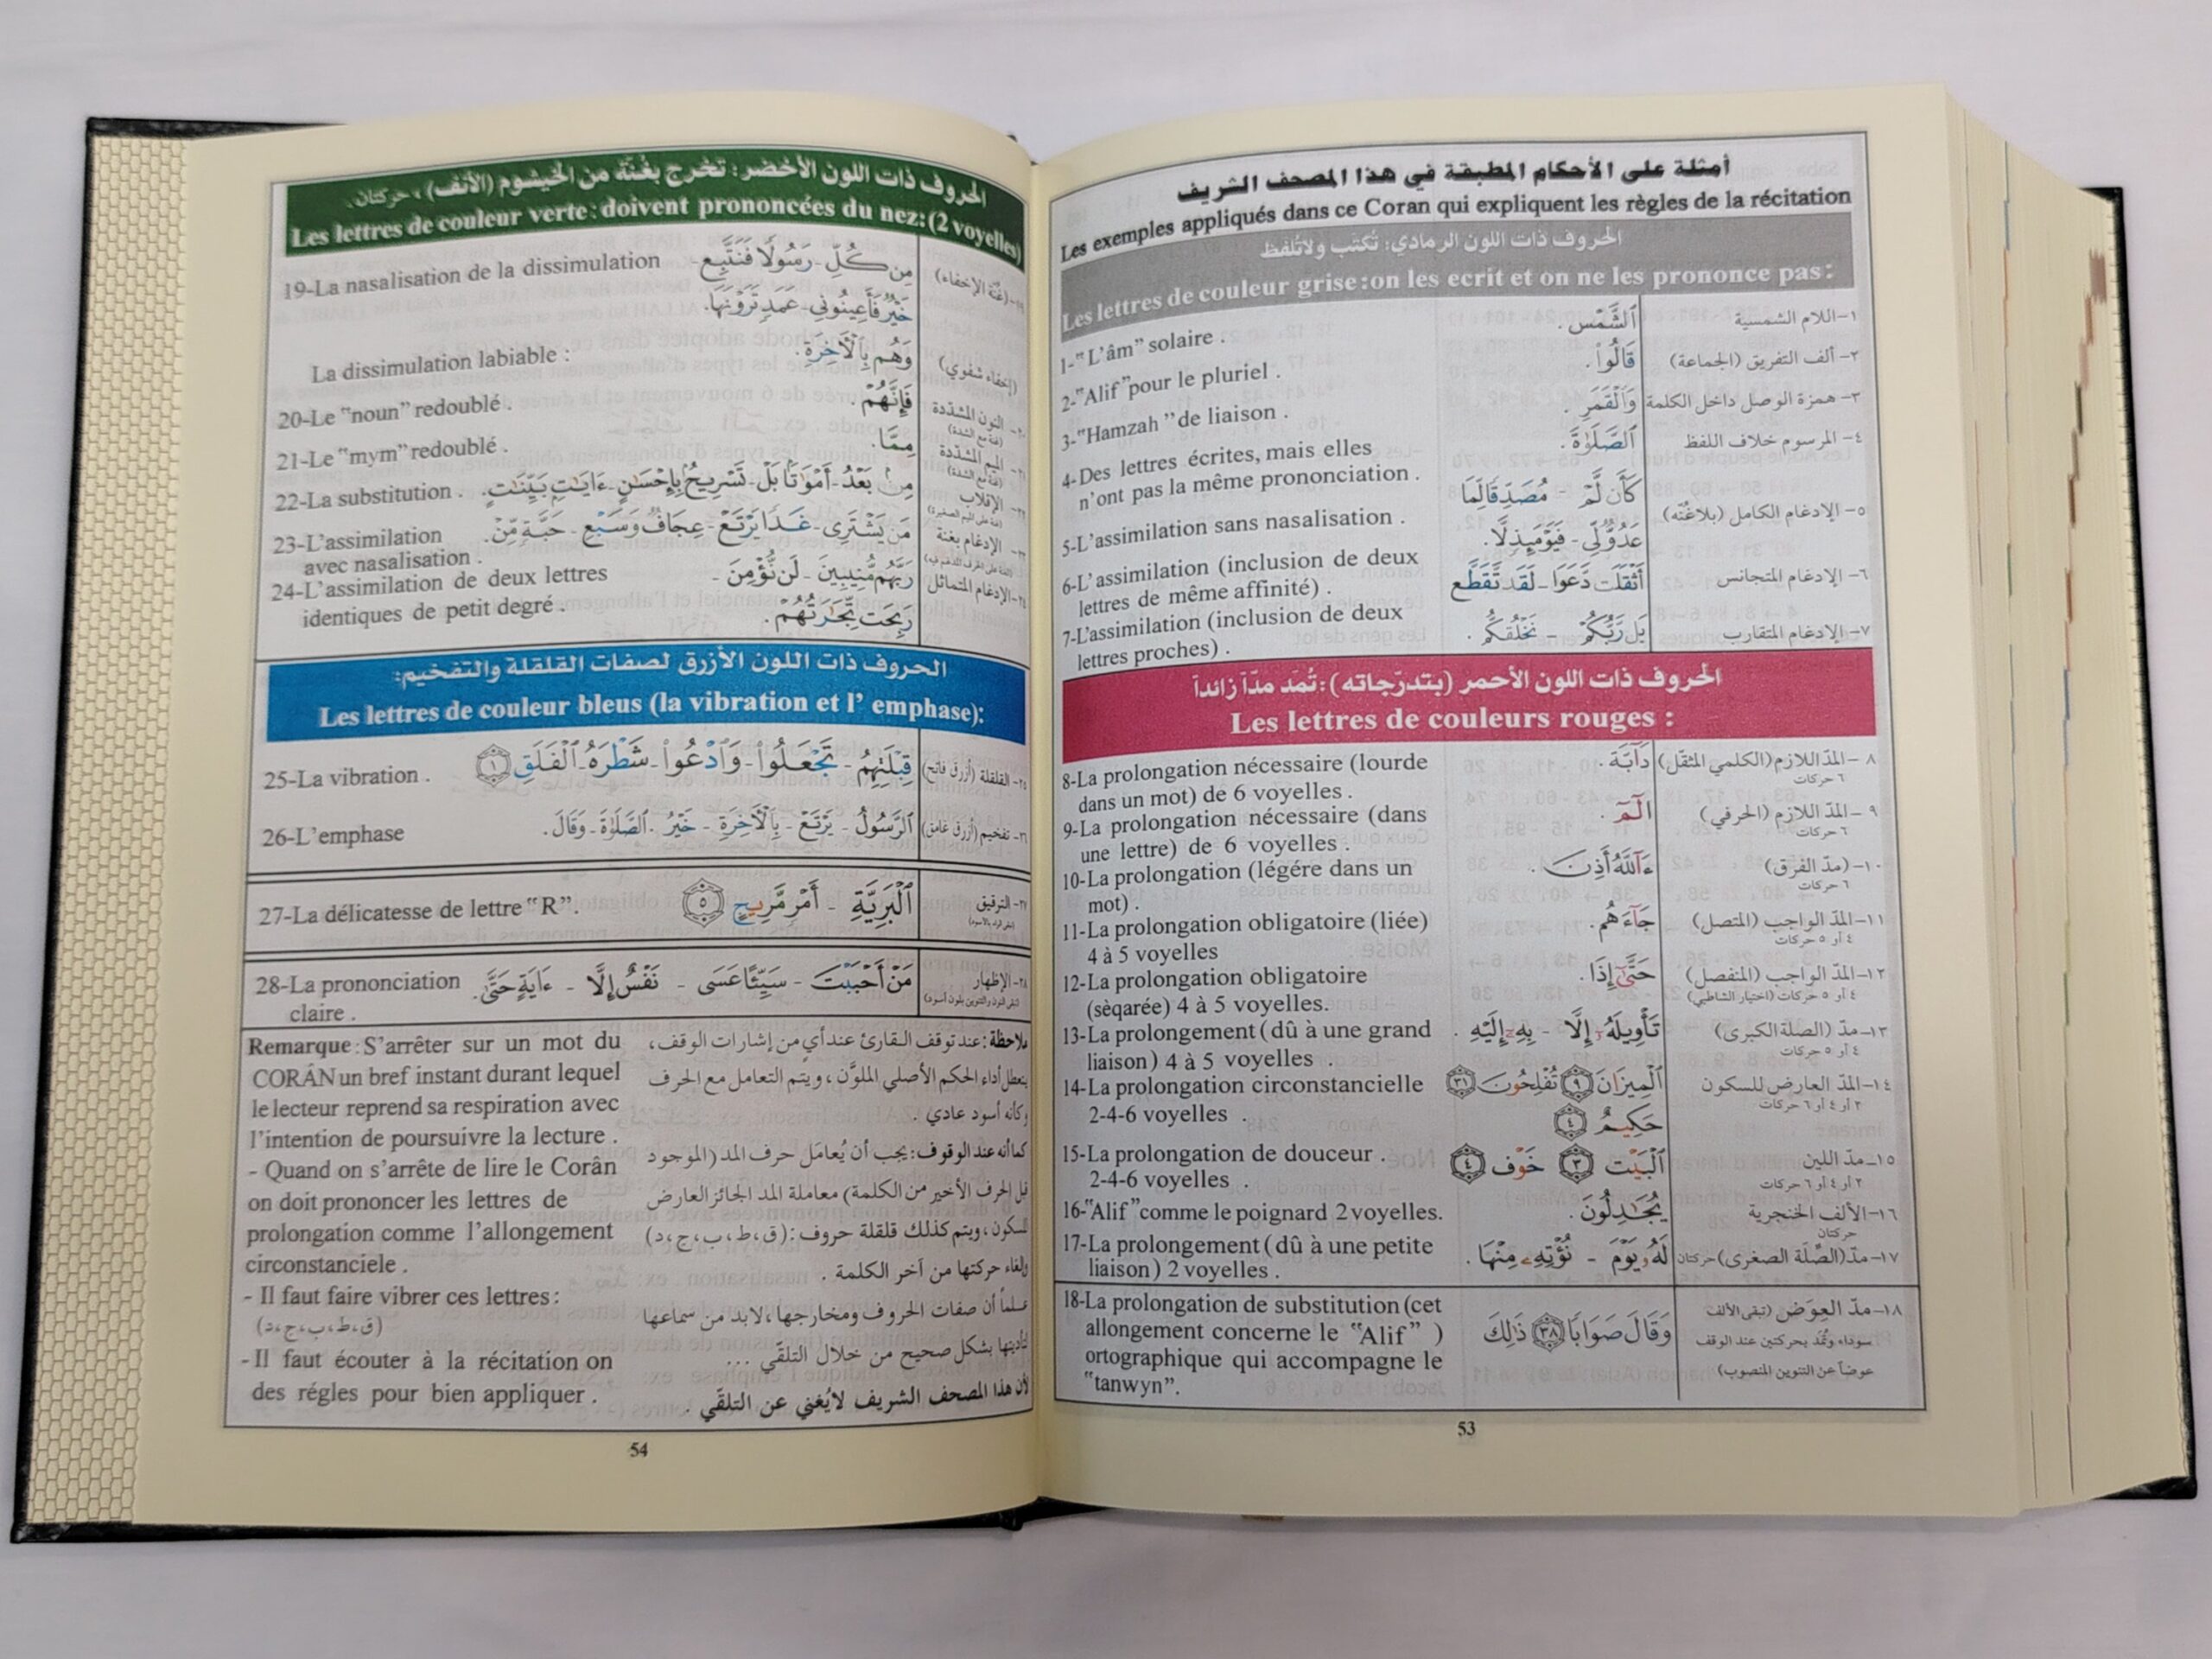 أمثلة على الأحكام المطبقة في هذا المصحف الشريف
Les exemples appliqués dans ce Coran qui expliquent les règles de la récitation
الحروف ذات اللون الرمادي: تُكتَب ولاتُلفظ
Les lettres de couleur grise:on les ecrit et on ne les prononce pas:
1-"L'âm" solaire .
ٱلشَّمْسِ.
١-اللام الشمسية
2-"Alif"pour le pluriel .
قَالُواْ.
٢- ألف التفريق (الجماعة)
3-"Hamzah" de liaison .
وَٱلْقَمَرِ.
٣- همزة الوصل داخل الكلمة
4-Des lettres écrites, mais elles
n'ont pas la même prononciation .
ٱلصَّلَوٰةَ.
٤- المرسوم خلاف اللفظ
5-L'assimilation sans nasalisation .
كَأَن لَّمْ - مُصَدِّقٗا لِّمَا
عَدُوّٞ لِّي - فَيَوْمَئِذٖ لَّا.
٥- الإدغام الكامل (بلاغُنّه)
6-L'assimilation (inclusion de deux
lettres de même affinité) .
أَثْقَلَت دَّعَوَا - لَقَد تَّقَطَّعَ
٦- الإدغام المتجانس
7-L'assimilation (inclusion de deux
lettres proches) .
بَل رَّبُّكُمْ - نَخْلُقكُّم .
٧- الإدغام المتقارب
الحروف ذات اللون الأحمر (بتدرّجاته):تُمَد مدّاً زائداً
Les lettres de couleurs rouges :
8-La prolongation nécessaire (lourde
dans un mot) de 6 voyelles .
دَآبَّةٍ.
٨ -المدّ اللازم(الكلمي المثقّل)
٦ حركات
9-La prolongation nécessaire (dans
une lettre) de 6 voyelles .
الٓمٓ.
٩ -المدّ اللازم (الحرفي)
٦ حركات
10-La prolongation (légére dans un
mot) .
ءَآللَّهُ أَذِنَ .
١٠-(مدّ الفرق)
٦ حركات
11-La prolongation obligatoire (liée)
4 à 5 voyelles
جَآءَهُم.
١١-المدّ الواجب (المتصل)
٤ أو ٥ حركات
12-La prolongation obligatoire
(sèqarée) 4 à 5 voyelles.
حَتَّىٰٓ إِذَا.
١٢-المدّ الواجب (المنفصل)
٤ أو ٥ حركات (اختيار الشاطبي)
13-La prolongement (dû à une grand
liaison) 4 à 5 voyelles .
تَأْوِيلَهُۥٓ إِلَّا - بِهِۦٓ إِلَيْهِ .
١٣-مدّ (الصلة الكبرى)
٤ أو ٥ حركات
14-La prolongation circonstancielle
2-4-6 voyelles .
ٱلْمِيزَانَ ٩ تُفْلِحُونَ ٣١
حَكِيمٌ ٤
١٤-المدّ العارض للسكون
٢ أو ٤ أو ٦ حركات
15-La prolongation de douceur .
2-4-6 voyelles .
ٱلْبَيْتِ ٣ خَوْفٍ ٤
١٥-مدّ اللين
٢ أو ٤ أو ٦ حركات
16-"Alif"comme le poignard 2 voyelles.
يُجَٰدِلُونَ .
١٦-الألف الخنجرية
حركتان
17-La prolongement (dû à une petite
liaison) 2 voyelles .
لَهُۥ يَوْمَ - نُؤْتِهِۦ مِنْهَا .
١٧-مدّ(الصِّلَة الصغرى)حركتان
18-La prolongation de substitution (cet
allongement concerne le "Alif" )
ortographique qui accompagne le
"tanwyn".
وَقَالَ صَوَابًا ٣٨ ذَٰلِكَ
١٨-مدّ العِوَض (تبقى الألف
سوداء وتُمَد بحركتين عند الوقف
عوضاً عن التنوين المنصوب)
53
الحروف ذات اللون الأخضر: تخرج بغُنّة من الخيشوم (الأنف) ، حركتان.
Les lettres de couleur verte:doivent prononcées du nez:(2 voyelles)
19-La nasalisation de la dissimulation
مِن كُلِّ - رَسُولًا فَنَتَّبِعَ -
خَيْرٌ فَأَعِينُونِي - عَمَدٍ تَرَوْنَهَا.
(غنّة الإخفاء)
La dissimulation labiable :
وَهُم بِٱلْأٓخِرَةِ.
(إخفاء شفوي)
20-Le "noun" redoublé .
فَإِنَّهُمْ.
النون المشدّدة
(غنة مع الشدة)
21-Le "mym" redoublé .
مِمَّا.
الميم المشدّدة
(غنة مع الشدة)
22-La substitution .
مِنۢ بَعْدُ - أَمْوَٰتًۢا بَلْ - تَسْرِيحٌۢ بِإِحْسَٰنٍ - ءَايَٰتٍۭ بَيِّنَٰتٍ.
الإقلاب
23-L'assimilation
avec nasalisation .
مَن يَشْتَرِي - غَدٗا يَرْتَعْ - عِجَافٞ وَسَبْعِ - حَبَّةٖ مِّنْ.
الإدغام بغنة
24-L'assimilation de deux lettres
identiques de petit degré .
رَبَّهُم مُّنِيبِينَ - لَن نُّؤْمِنَ -
رَبِحَت تِّجَٰرَتُهُمْ .
٢٤-الإدغام المتماثل
الحروف ذات اللون الأزرق لصفات القلقلة والتفخيم:
Les lettres de couleur bleus (la vibration et l' emphase):
25-La vibration .
قِبْلَتِهِمُ - تَجْعَلُواْ - وَٱدْعُواْ - شَطْرَهُۥ - ٱلْفَلَقِ ١
٢٥-القلقلة (أزرق فاتح)
26-L'emphase
ٱلرَّسُولُ - يَرْتَعْ - بِٱلْأٓخِرَةِ - خَيْرُ - ٱلصَّلَوٰةَ - وَقَالَ.
٢٦-تفخيم (أزرق غامق)
27-La délicatesse de lettre "R".
ٱلْبَرِيَّةِ - أَمْرٍ مَّرِيجٍ ٥
٢٧-الترقيق
28-La prononciation
claire .
مَنْ أَحْبَبْتَ - سَيِّئًا عَسَى - نَفْسٌ إِلَّا - ءَايَةٍ حَتَّىٰ.
٢٨-الإظهار
(تبقى النون والتنوين بلون أسود)
Remarque:S'arrêter sur un mot du
CORÁN un bref instant durant lequel
le lecteur reprend sa respiration avec
l'intention de poursuivre la lecture .
- Quand on s'arrête de lire le Corân
on doit prononcer les lettres de
prolongation comme l'allongement
circonstanciele .
- Il faut faire vibrer ces lettres:
(ق،ط،ب،ج،د)
-Il faut écouter à la récitation on
des régles pour bien appliquer .
ملاحظة:عند توقف القارئ عند أي من إشارات الوقف،
يتعطل أداء الحكم الأصلي الملوَّن ، ويتم التعامل مع الحرف
وكأنه أسود عادي .
كما أنه عند الوقوف: يجب أن يُعامَل حرف المد (الموجود
قبل الحرف الأخير من الكلمة) معاملة المد الجائز العارض
للسكون، ويتم كذلك قلقلة حروف :(ق،ط،ب،ج،د)
وإلغاء حركتها من آخر الكلمة .
علماً أن صفات الحروف ومخارجها، لابد من سماعها
لتأديتها بشكل صحيح من خلال التلقّي ...
لأن هذا المصحف الشريف لايُغني عن التلقّي .
54